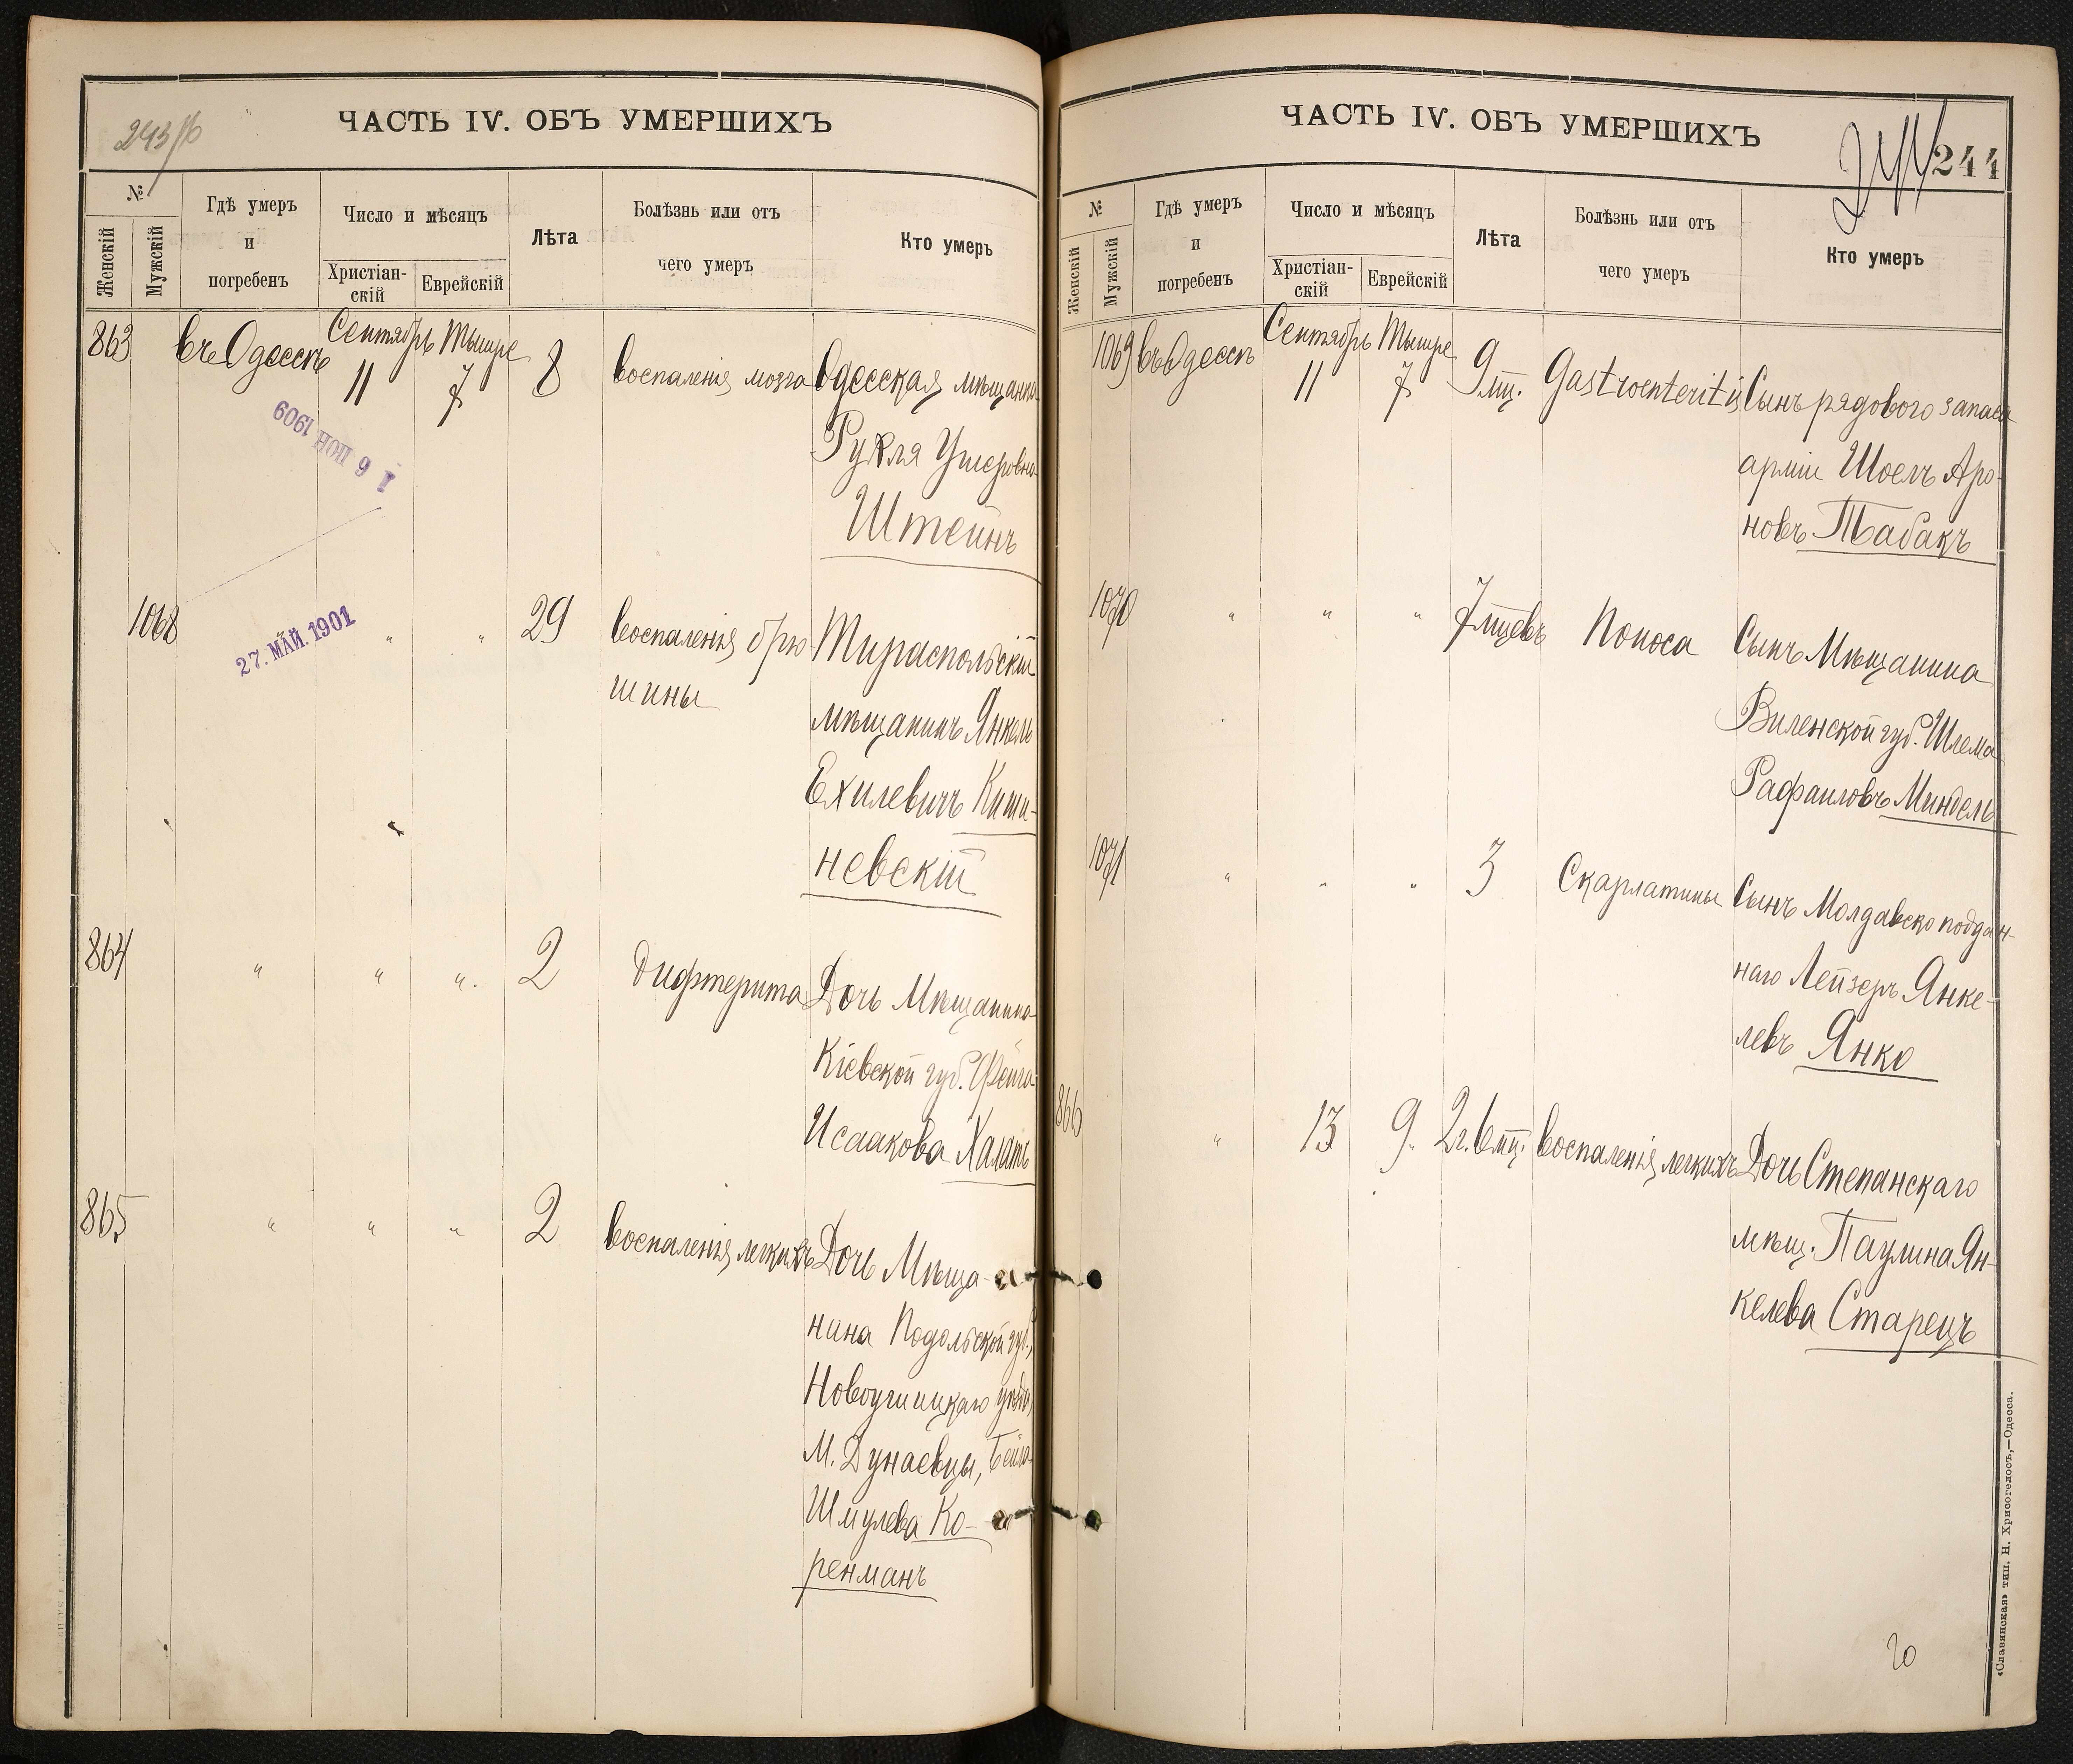 243/б
ЧАСТЬ IV. ОБЪ УМЕРШИХЪ
№
Женскій
Мужскій
Гдѣ умеръ
и
погребенъ
Число и мѣсяцъ
Христіан-
скій
Еврейскій
Лѣта
Болѣзнь или отъ
чего умеръ
Кто умеръ
863 въ Одессѣ Сентябрь 11 Тишре 7 8 воспаленія мозга Одесская мѣщанка
Рухля Ушеровна
Штейнъ
1 6 ІЮН 1909
27. МАЙ. 1901
1068 " " 29 воспаленія брю Тираспольскій
шины мѣщанинъ Янкель
Ехилевичъ Киши-
невскій
864 " " " 2 дифтерита Дочь Мѣщанина
Кіевской губ. Фейга
Исаакова Халатъ
865 " " " 2 воспаленія легкихъ Дочь Мѣща-
нина Подольской губ.,
Новоушицкаго уѣзда,
М. Дунаевцы, Бейла
Шмулева Ко-
ренманъ
ЧАСТЬ IV. ОБЪ УМЕРШИХЪ
244
244
№
Женскій
Мужскій
Гдѣ умеръ
и
погребенъ
Число и мѣсяцъ
Христіан-
скій
Еврейскій
Лѣта
Болѣзнь или отъ
чего умеръ
Кто умеръ
1069 въ Одессѣ Сентябрь 11 Тишре 7 9 мц. Gastroenteritis Сынъ рядового запаса
арміи Шоелъ Аро-
новъ Табакъ
1070 " " " 7 мцевъ Поноса Сынъ Мѣщанина
Виленской губ. Шлема
Рафаиловъ Миндель
1071 " " " 3 Скарлатины Сынъ Молдавско поддан-
наго Лейзеръ Янке-
левъ Янко
866 " 13 9. 2 г. 6 мц. воспаленія легкихъ Дочь Степанскаго
мѣщ. Паулина Ян-
келева Старецъ
«Славянская» тип. Н. Хрисогелосъ,—Одесса.